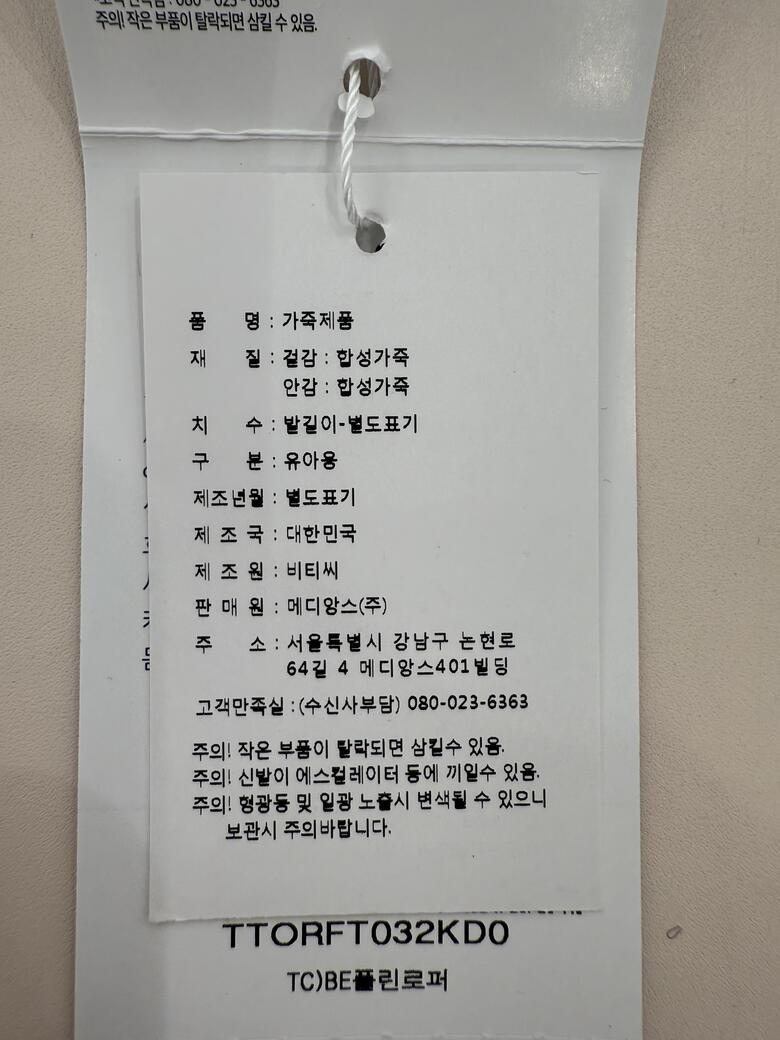 주의! 작은 부품이 탈락되면 삼킬 수 있음.
품 명 : 가죽제품
재 질 : 겉감 : 합성가죽
안감 : 합성가죽
치 수 : 발길이-별도표기
구 분 : 유아용
제조년월 : 별도표기
제 조 국 : 대한민국
제 조 원 : 비티씨
판 매 원 : 메디앙스(주)
주 소 : 서울특별시 강남구 논현로
64길 4 메디앙스401빌딩
고객만족실 : (수신사부담) 080-023-6363
주의! 작은 부품이 탈락되면 삼킬수 있음.
주의! 신발이 에스컬레이터 등에 끼일수 있음.
주의! 형광등 및 일광 노출시 변색될 수 있으니
보관시 주의바랍니다.
TTORFT032KD0
TC)BE플린로퍼